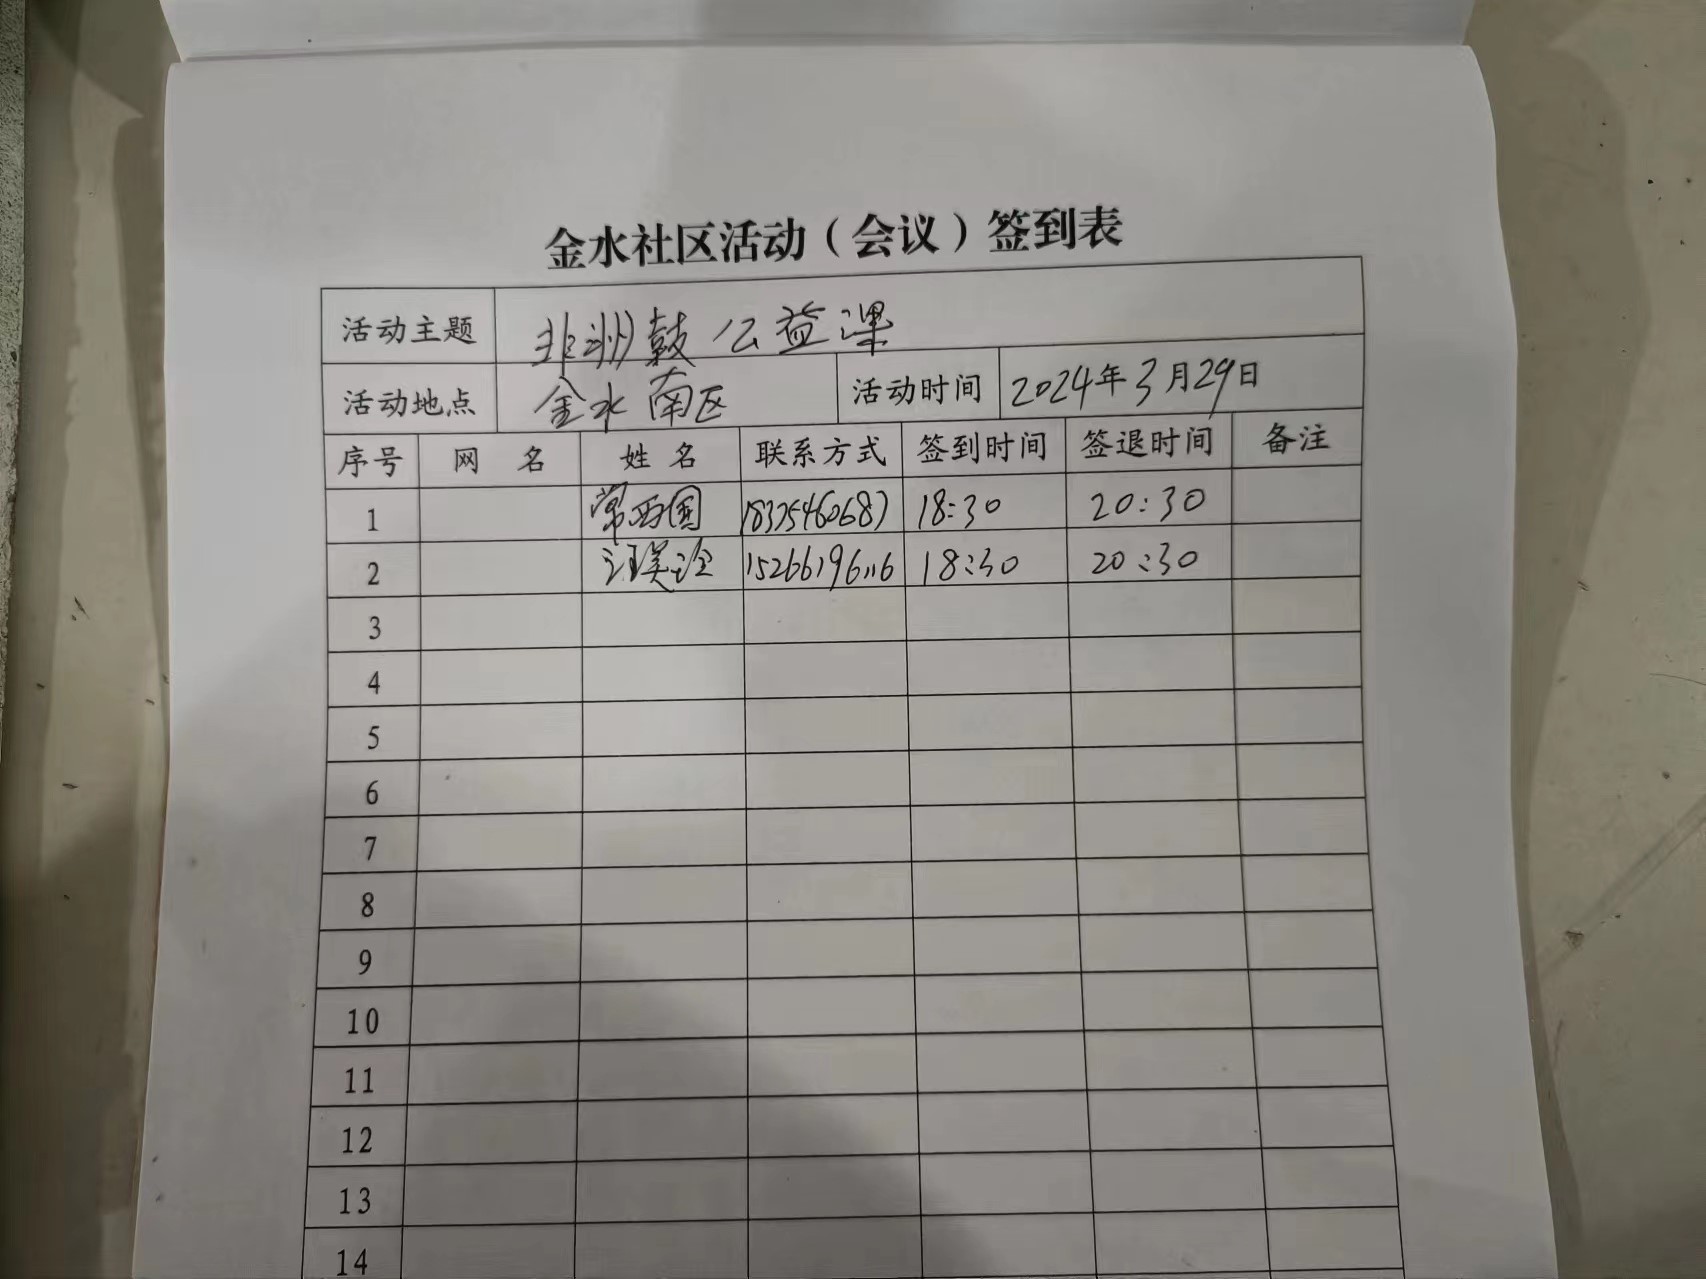 金水社区活动（会议）签到表
活动主题 非洲鼓公益课
活动地点 金水南区 活动时间 2024年3月29日
序号 网 名 姓名 联系方式 签到时间 签退时间 备注
1 常西国 18375460687 18:30 20:30
2 15266196116 18:30 20:30
3
4
5
6
7
8
9
10
11
12
13
14